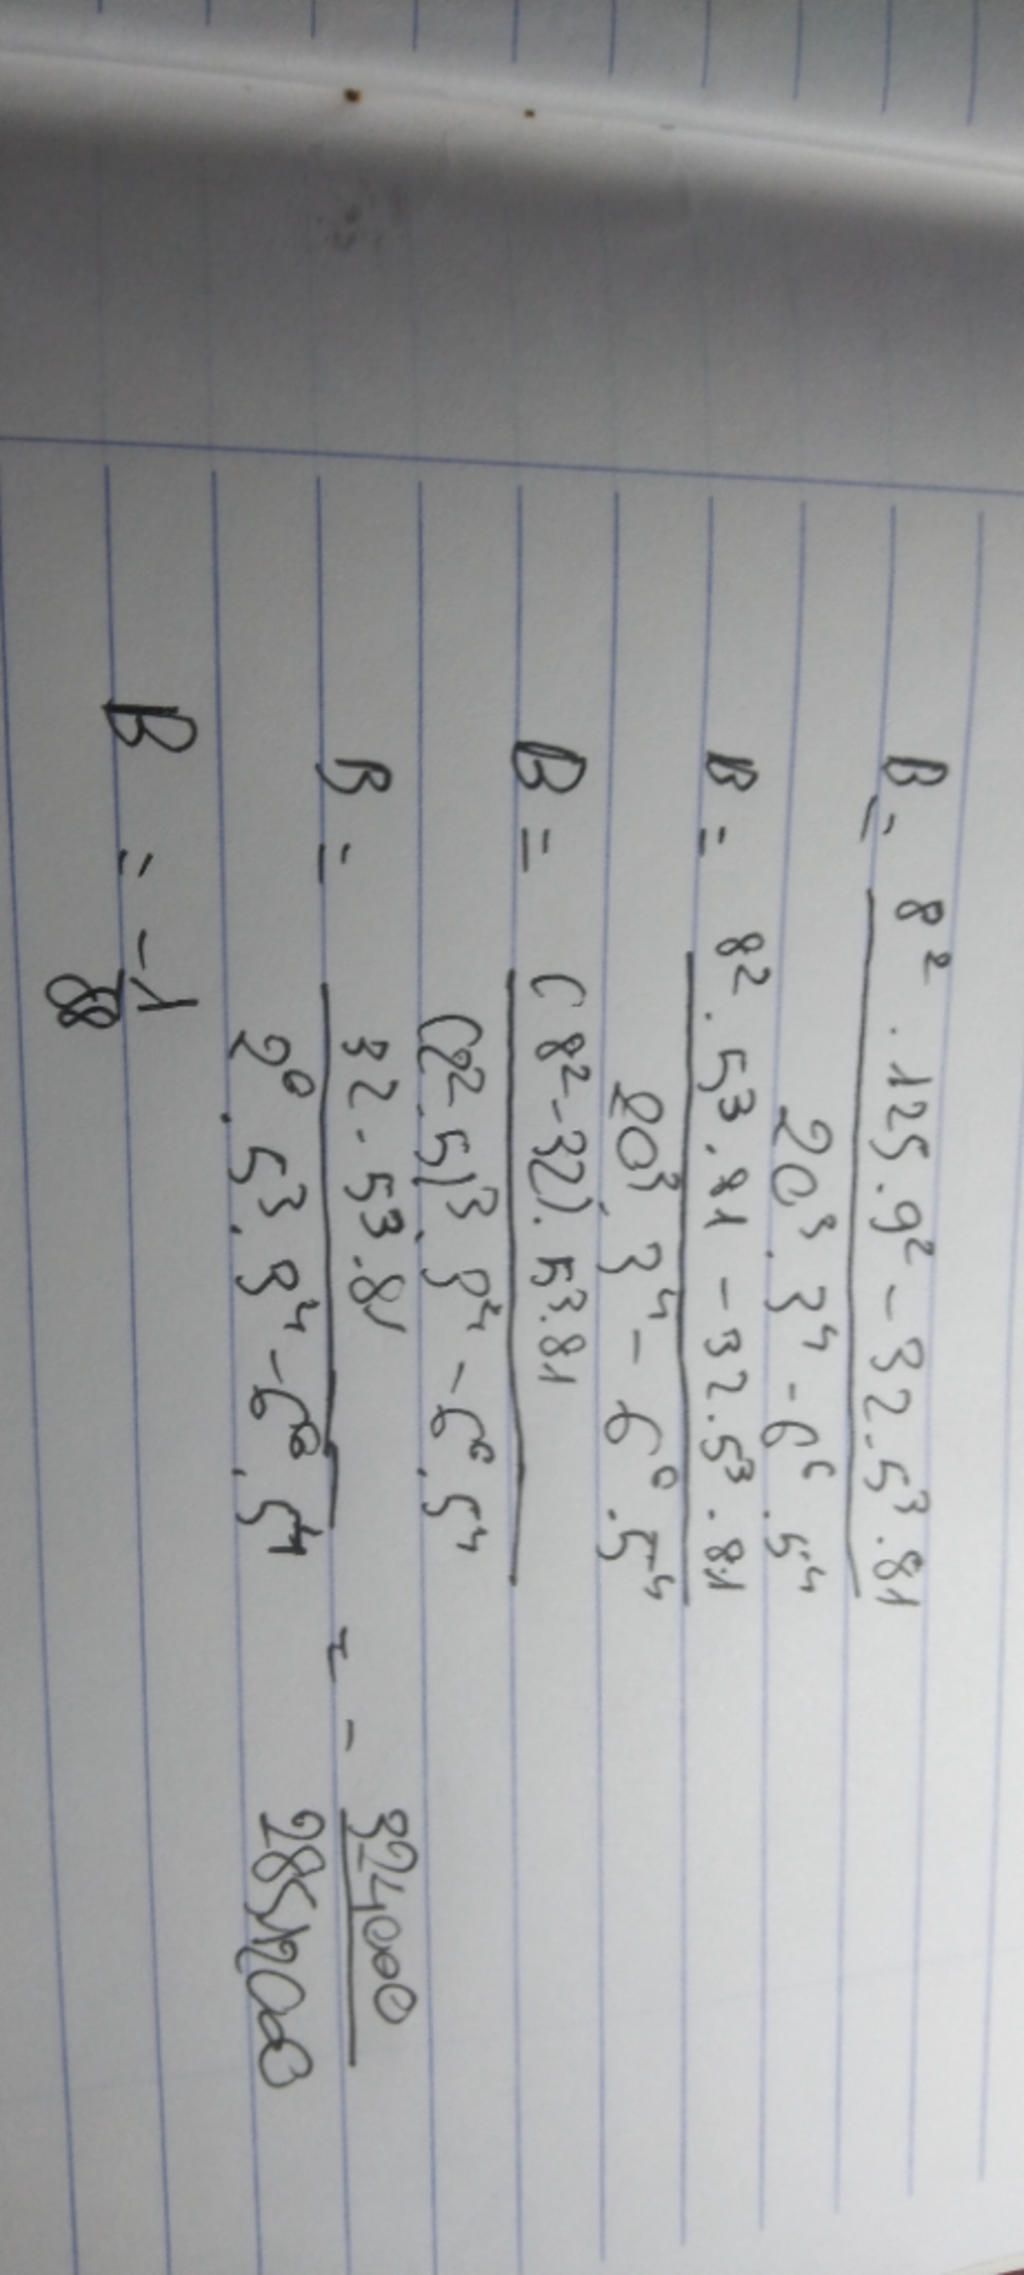 B = 8² . 125 . 9² - 32 . 5³ . 81
20³ . 3⁴ - 6⁶ . 5⁴
B = 8² . 5³ . 81 - 32 . 5³ . 81
20³ . 3⁴ - 6⁶ . 5⁴
B = (8² - 32) . 5³ . 81
(2² . 5)³ . 3⁴ - 6⁶ . 5⁴
B = 32 . 5³ . 81 = - 324000
2⁶ . 5³ . 3⁴ - 6⁶ . 5⁴ 28512000
B = - 1
88